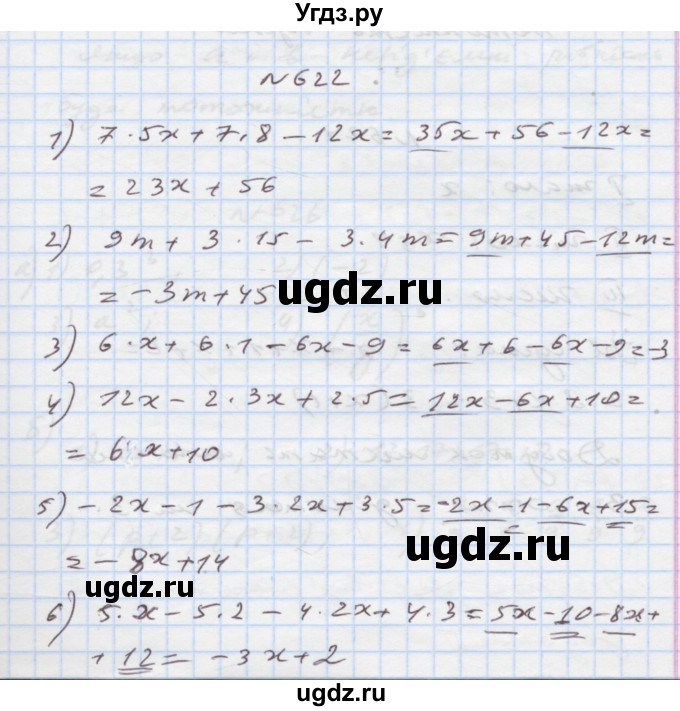 Угдз.ру
№622
1) 7·5x+7·8-12x=35x+56-12x=
=23x+56
2) 9m+3·15-3·4m=9m+45-12m=
=-3m+45
ugdz.ru
3) 6·x+6·1-6x-9=6x+6-6x-9=-3
4) 12x-2·3x+2·5=12x-6x+10=
=6x+10
5) -2x-1-3·2x+3·5=-2x-1-6x+15=
=-8x+14
ugdz.ru
ugdz.ru
6) 5·x-5·2-4·2x+4·3=5x-10-8x+
+12=-3x+2
ugdz.ru